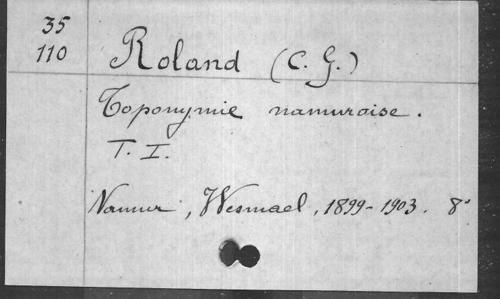 35
110
Roland (C. G.)
Toponymie namuroise.
T. I.
Namur, Wesmael, 1899-1903. 8°